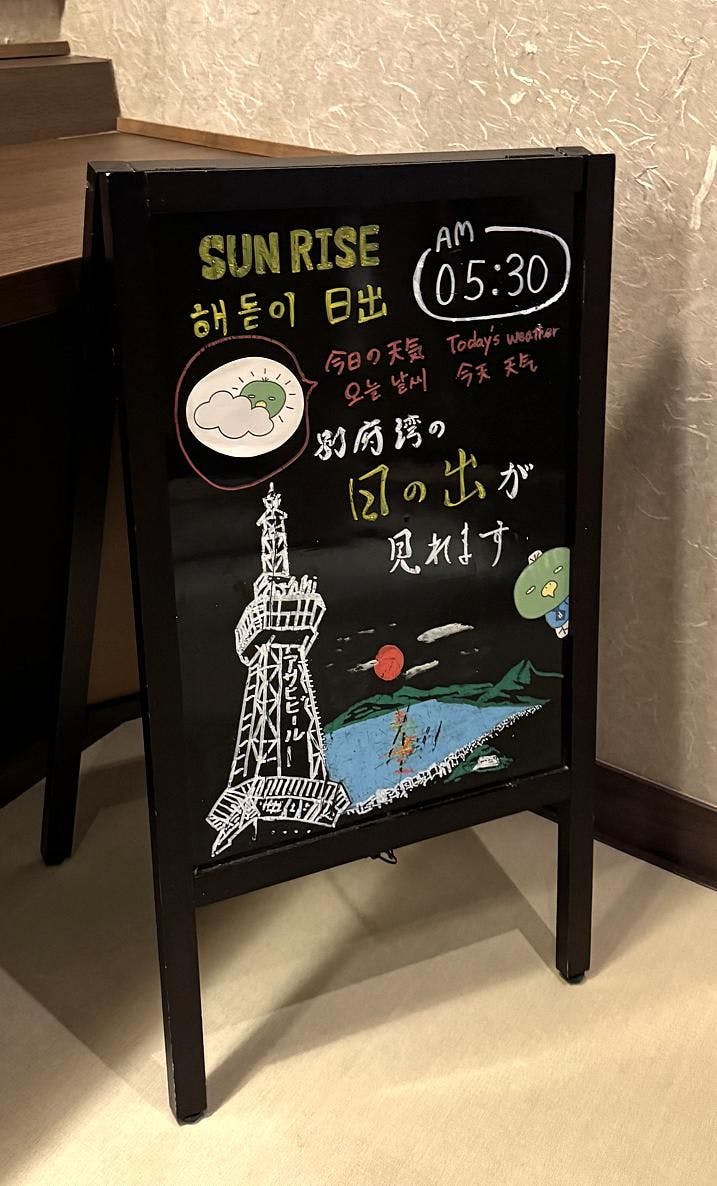 SUN RISE
AM
05:30
해돋이 日出
今日の天気 Today's weather
오늘 날씨 今天 天气
別府湾の
日の出が
見れます
アサヒビール